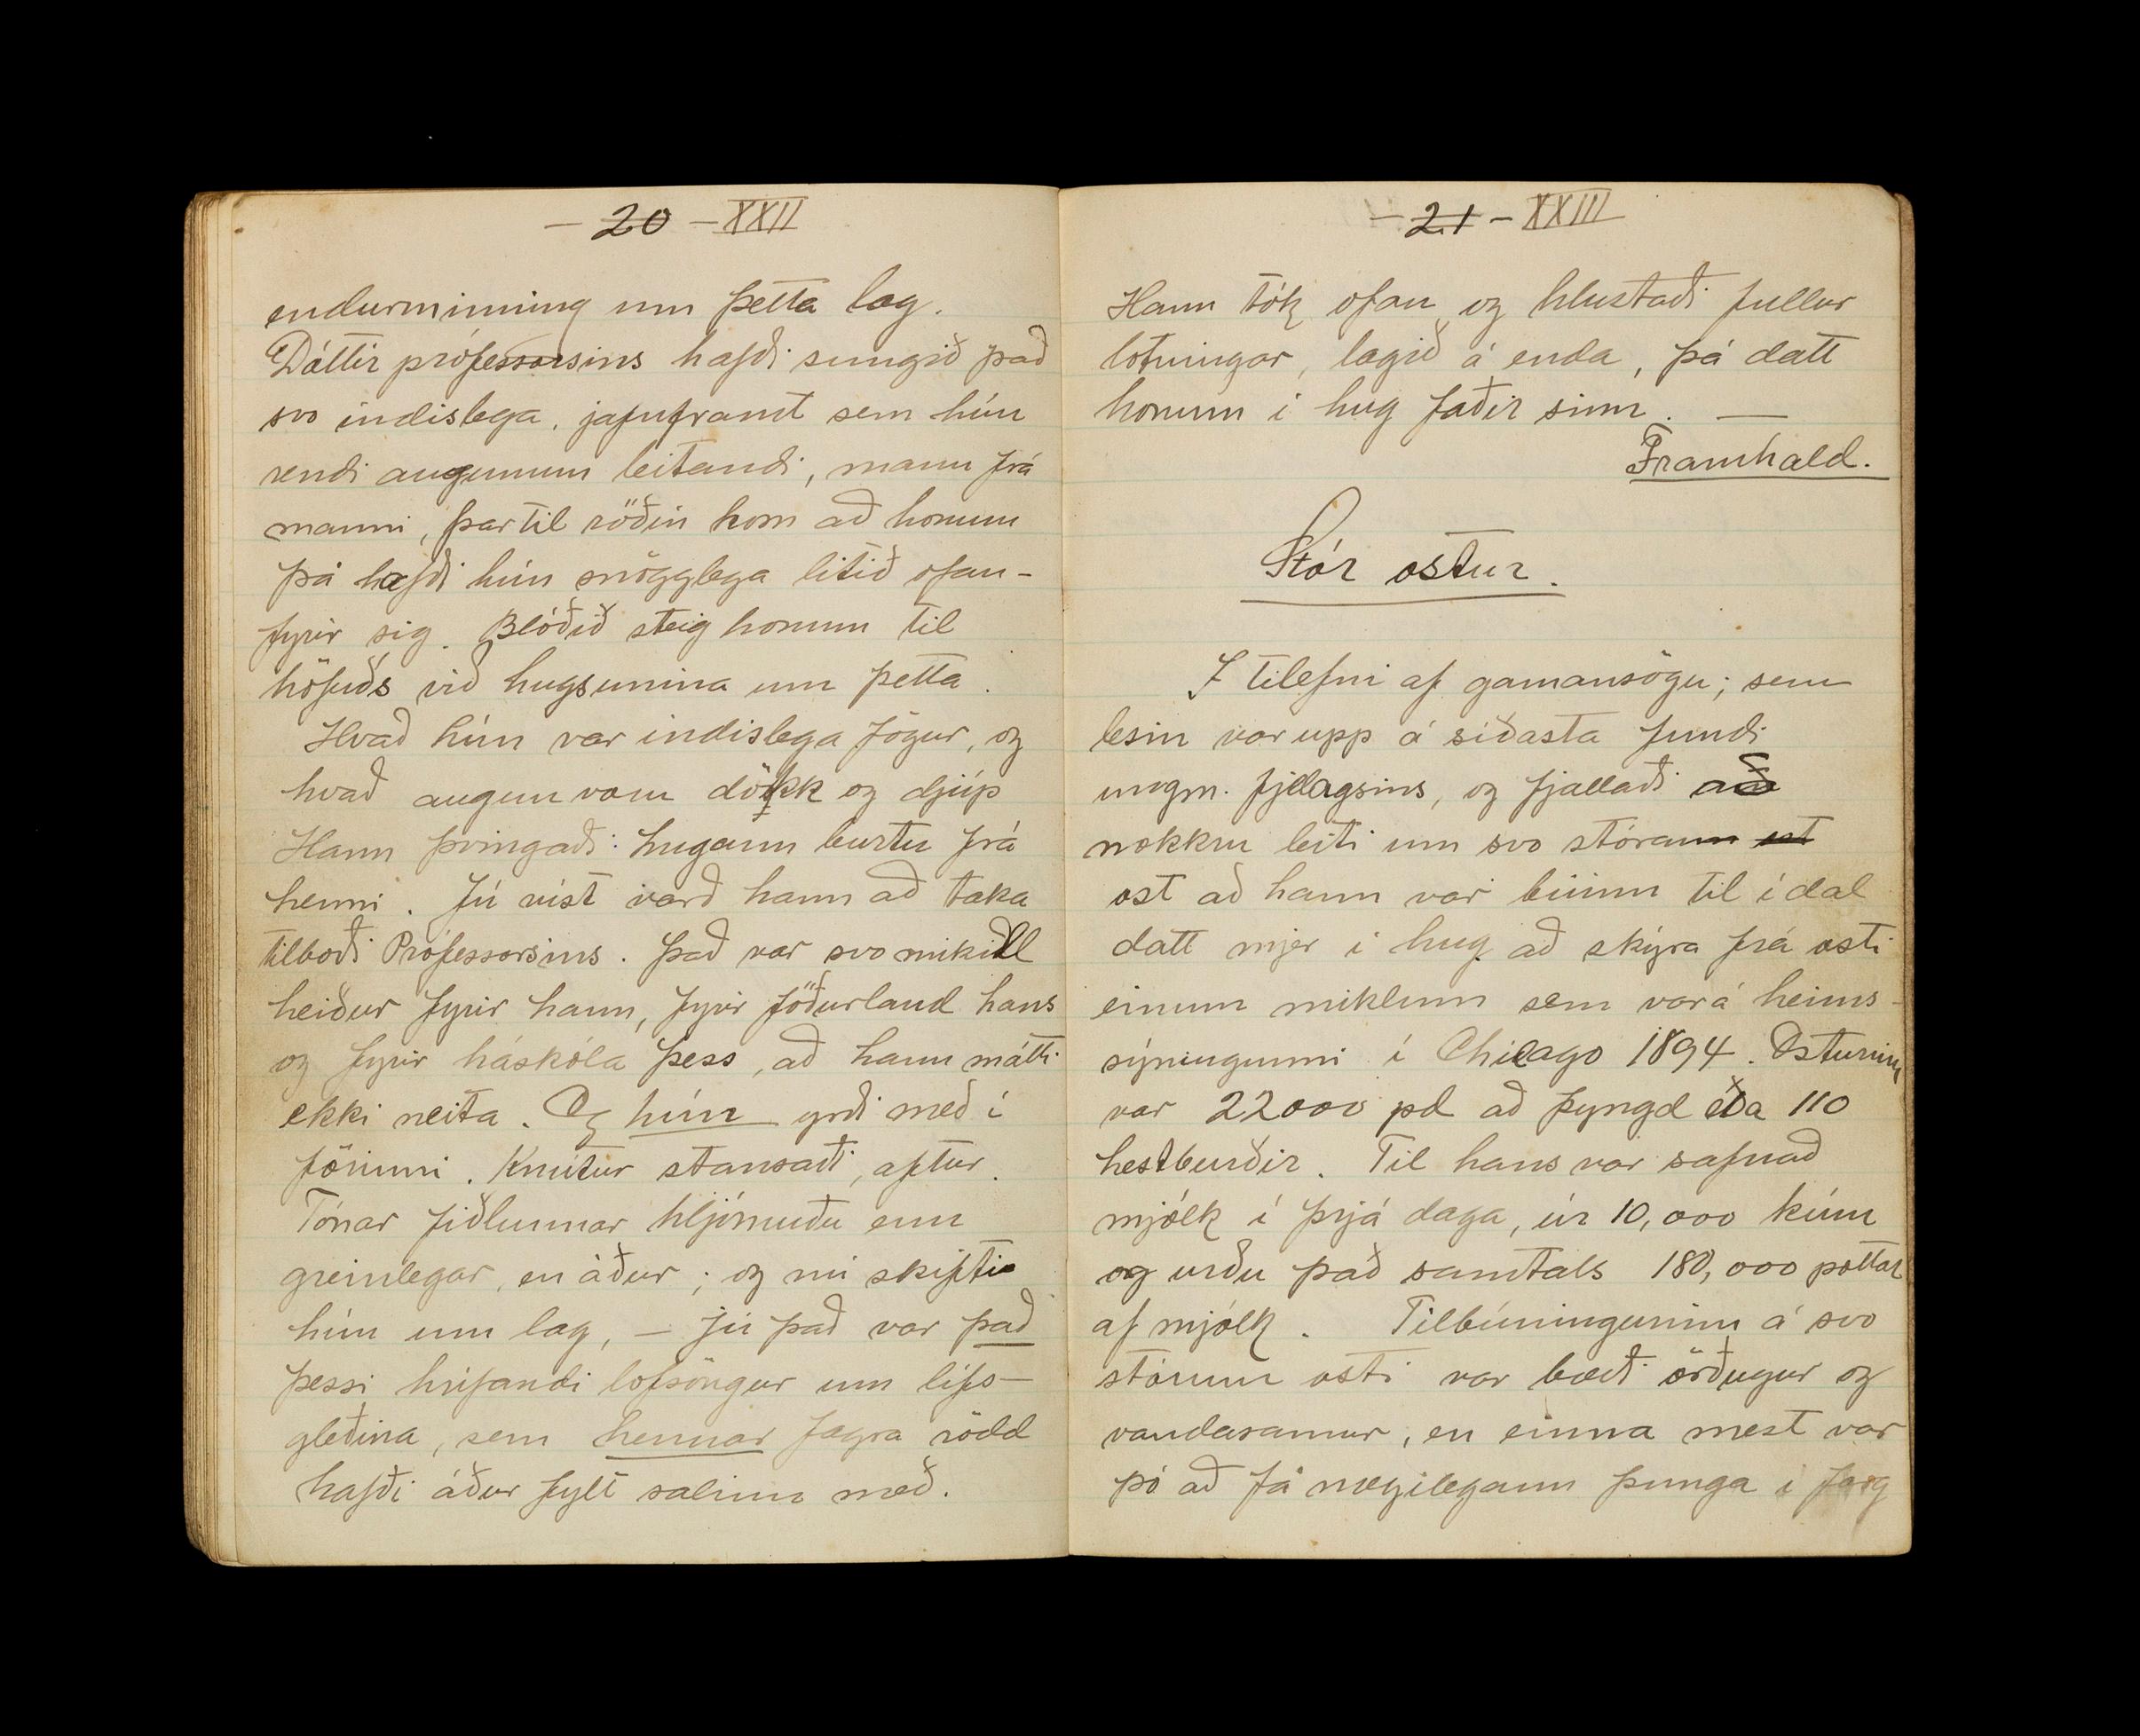 - 20 - XXII
endurminning um þetta lag.
Dóttir prófessorsins hafði sungið það
svo indislega, jafnframt sem hún
rendi augunum leitandi, mann frá
manni, þar til röðin kom að honum
þá hafði hún snögglega litið ofan-
fyrir sig. Blóðið steig honum til
höfuðs við hugsunina um þetta.
Hvað hún var indislega fögur, og
hvað augun voru dökk og djúp
Hann þvingaði hugann burtu frá
henni. Jú víst varð hann að taka
tilboði Prófessorsins. Það var svo mikill
heiður fyrir hann, fyrir föðurland hans
og fyrir háskóla þess, að hann mátti
ekki neita. Og hún yrði með í
förinni. Knútur stansaði, aftur.
Tónar fiðlunnar hljómuðu enn
greinlegar, en áður; og nú skifti
hún um lag, — jú það var það
þessi hrífandi lofsöngur um lífs-
gleðina, sem hennar fagra rödd
hafði áður fylt salinn með.
- 21 - XXIII
Hann tók ofan og hlustaði fullur
lotningar, lagið á enda, þá datt
honum í hug faðir sinn. —
Framhald.
Stór ostur.
I tilefni af gamansögu; sem
lesin var upp á síðasta fundi
ungm. fjelagsins, og fjallaði að
nokkru leiti um svo stórann ost
ost að hann var búinn til í dal
datt mjer í hug að skýra frá osti
einum miklum sem var á heims-
sýningunni í Chicago 1894. Osturinn
var 22000 pd að þyngd eða 110
hestburðir. Til hans var safnað
mjólk í þrjá daga, úr 10,000 kúm
og urðu það samtals 180,000 pottar
af mjólk. Tilbúningurinn á svo
stórum osti var bæði örðugur og
vandasamur, en einna mest var
þó að fá nægilegann þunga í farg